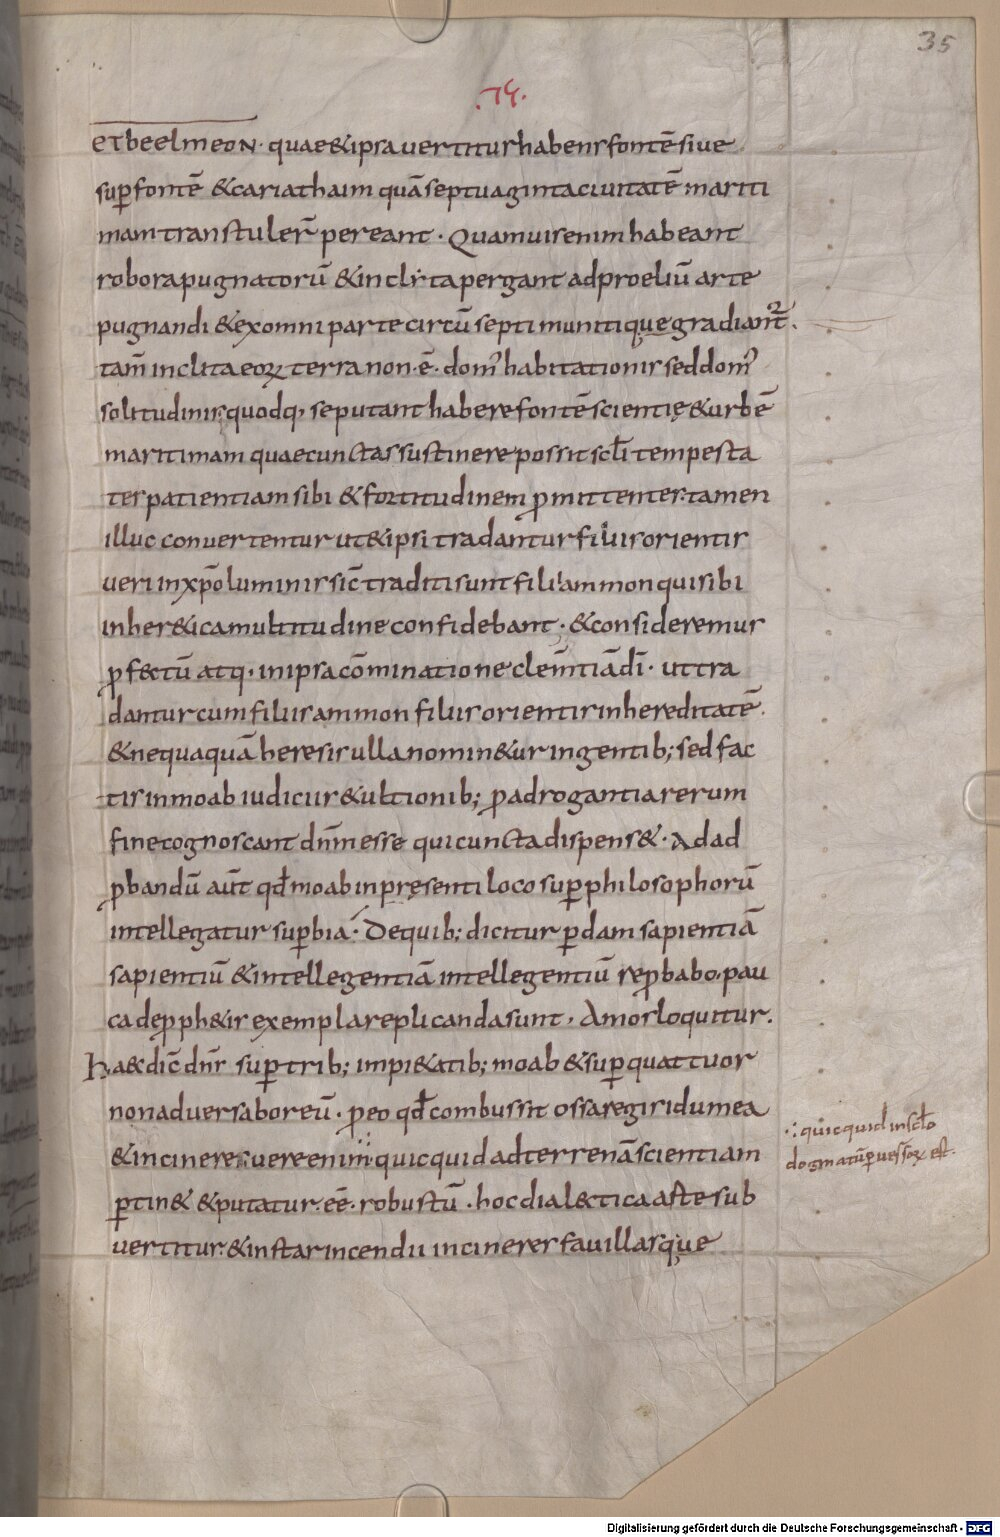 35
.74.
etbeelmeon· quae&ipsa uertitur habens fontē siue
suꝑfontē &cariathaim quā septuaginta ciuitatē mariti
mam transtuler̄ pereant· Quamuis enim habeant
robora pugnatorū &inclyta pergant ad proeliū arte
pugnandi &exomni parte circū septi munitique gradiant᷑.
tam̄ inclita eoꝝ terra non·ē· domꝰ habitationis sed domꝰ
solitudinis, quodq, se putant habere fontē scientię &urbē
maritimam quae cunctas sustinere possit scl̄i tempesta
tes patientiam sibi &fortitudinem ꝓmittentes. tamen
illuc conuertentur ut&ipsi tradantur filiis orientis
ueri inxp̄o luminis sic̄ traditi sunt filii ammon qui sibi
inher&ica multitudine confidebant· &consideremus
ꝓf&ctū atq· inipsa cōminatione clem̄tiā dī· ut tra
dantur cum filiis ammon filiis orientis inhereditatē.
&nequaquā heresis ulla nomin&ur ingentib; sed fac
tis inmoab iudiciis &ultionib; ꝓ adrogantia rerum
fine cognoscant dn̄m esse qui cuncta dispens&· Ad ad
ꝓbandū aūt qđ moab inpręsenti loco suꝑ philosophorū
intellegatur suꝑbia· De quib; dicitur ꝑdam sapientiā
sapientiū &intellegentiā intellegentiū reꝓbabo. pau
ca de ꝓph&is exempla replicanda sunt, Amos loquitur.
ha&c dic̄ dn̄s suꝑ trib; impi&atib; moab &suꝑ quattuor
non aduersabor eū· ꝑeo qđ combussit ossa regis idumea
&incineres, uere enim quicquid ad terrenā scientiam
ꝑtin& &putatur·eē· robustū· hoc dial&tica aste sub
uertitur. &instar incendii incineres fauillasque
∴ quicquid inscl̄o
dogmatū ꝑuersoꝝ est.
Digitalisierung gefördert durch die Deutsche Forschungsgemeinschaft - DFG